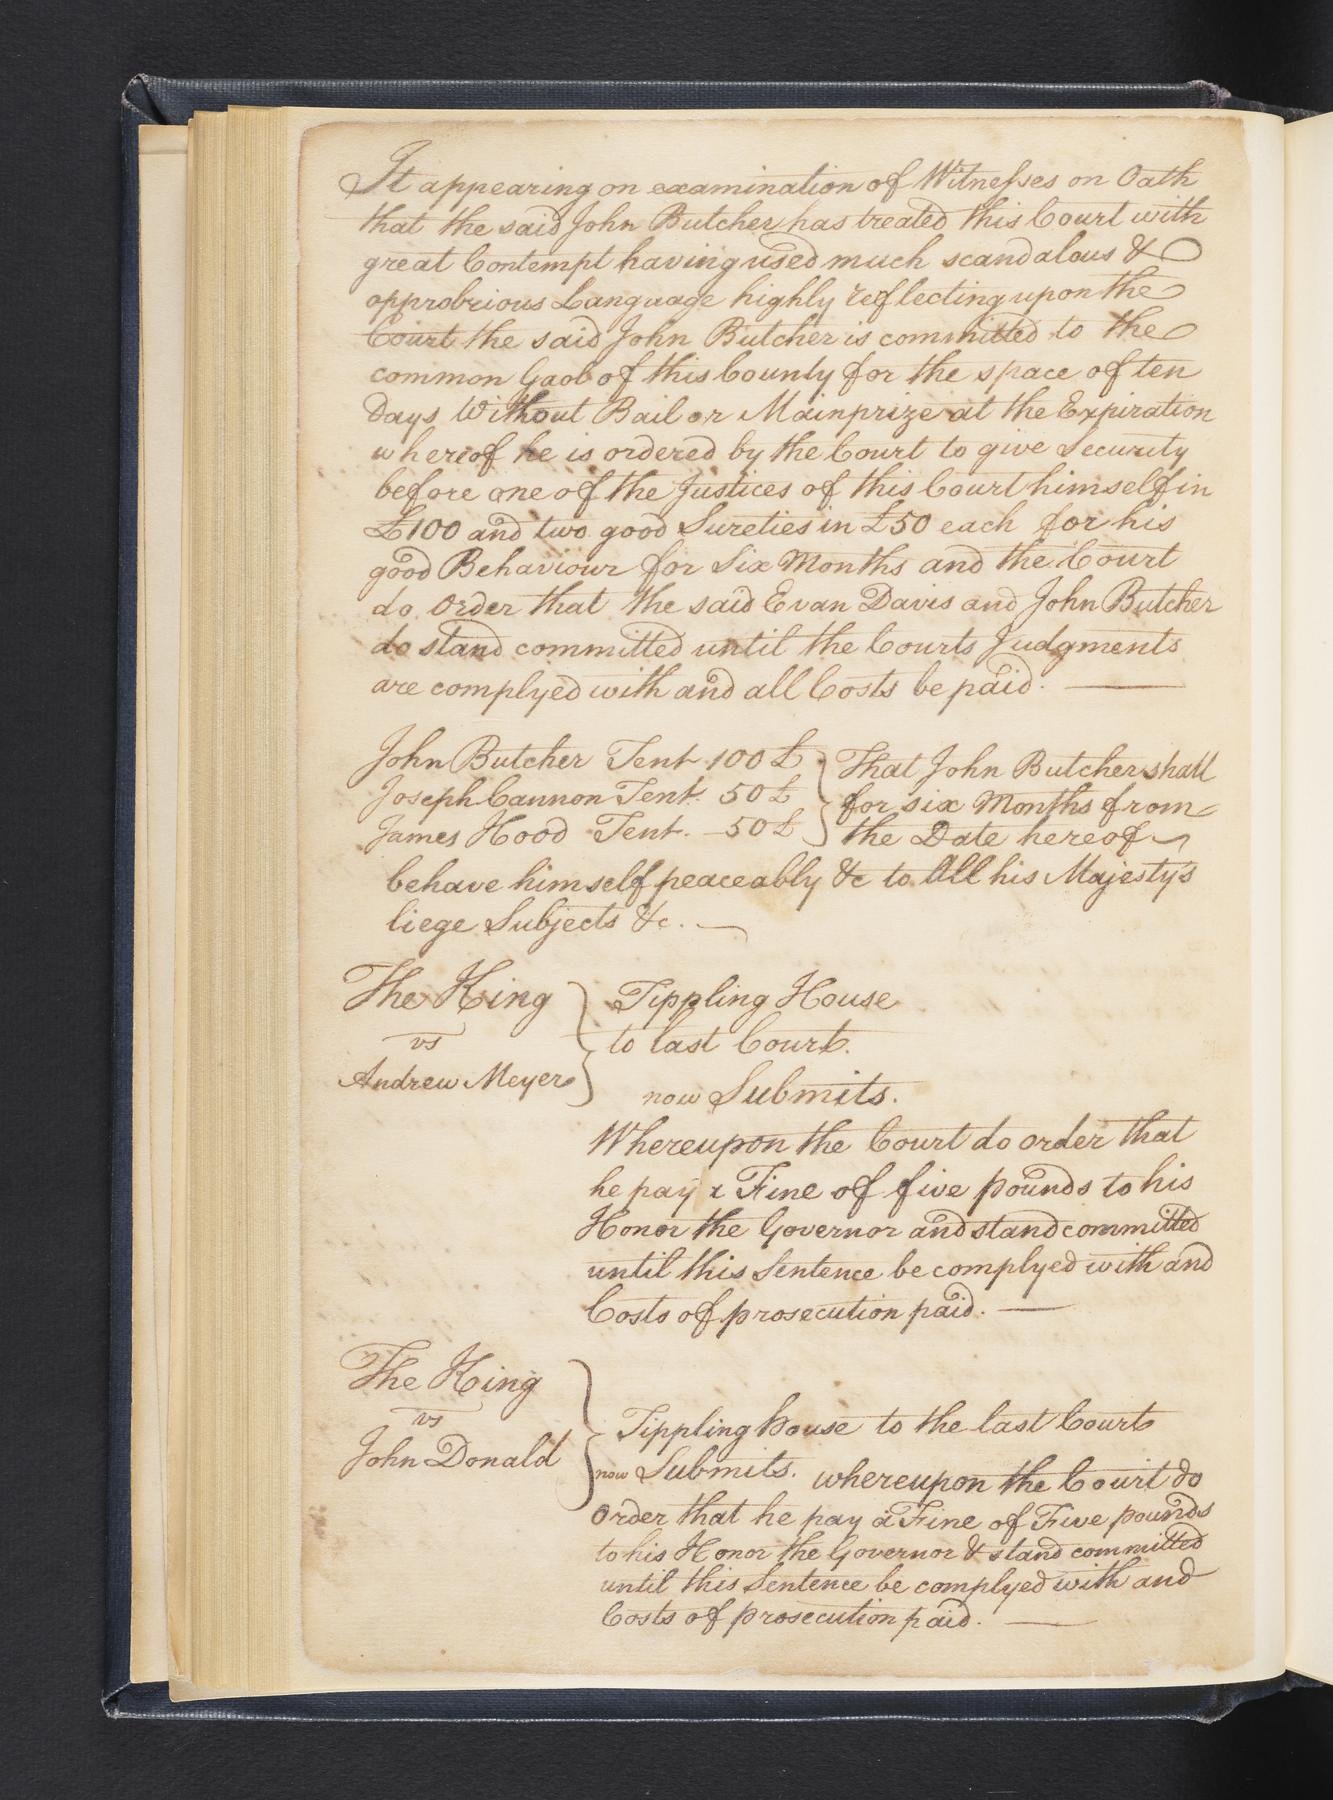 It appearing on examination of Witnesses on Oath
that the said John Butcher has treated this Court with
great Contempt having used much scandalous &
opprobrious Language highly reflecting upon the
Court the said John Butcher is committed to the
common Gaol of this County for the space of ten
Days Without Bail or Mainprize at the Expiration
whereof he is ordered by the Court to give Security
before one of the Justices of this Court himself in
£100 and two good Sureties in £50 each for his
good Behaviour for Six Months and the Court
do Order that the said Evan Davis and John Butcher
do stand committed until the Courts Judgments
are complyed with and all Costs be paid.
John Butcher Tent 100£ } That John Butcher shall
Joseph Cannon Tent. 50£ } for six Months from
James Hood Tent. 50£ } the Date hereof
behave himself peaceably &c to All his Majesty's
liege Subjects &c.
The King } Tippling House
vs } to last Court.
Andrew Meyer } now Submits.
Whereupon the Court do order that
he pay a Fine of five pounds to his
Honor the Governor and stand committed
until this Sentence be complyed with and
Costs of prosecution paid.
The King
vs } Tippling house to the last Court
John Donald } now Submits. whereupon the Court do
Order that he pay a Fine of Five pounds
to his Honor the Governor & stand committed
until this Sentence be complyed with and
Costs of prosecution paid.